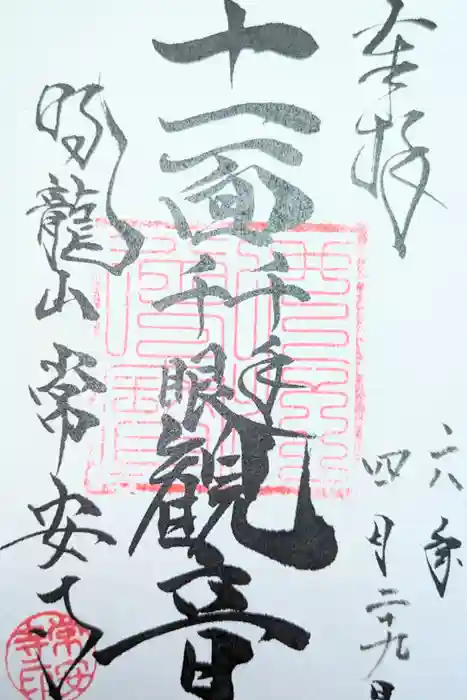 奉拝
六年
四月二十九日
十一面千手
千眼観音
明龍山 常安寺
常安寺印